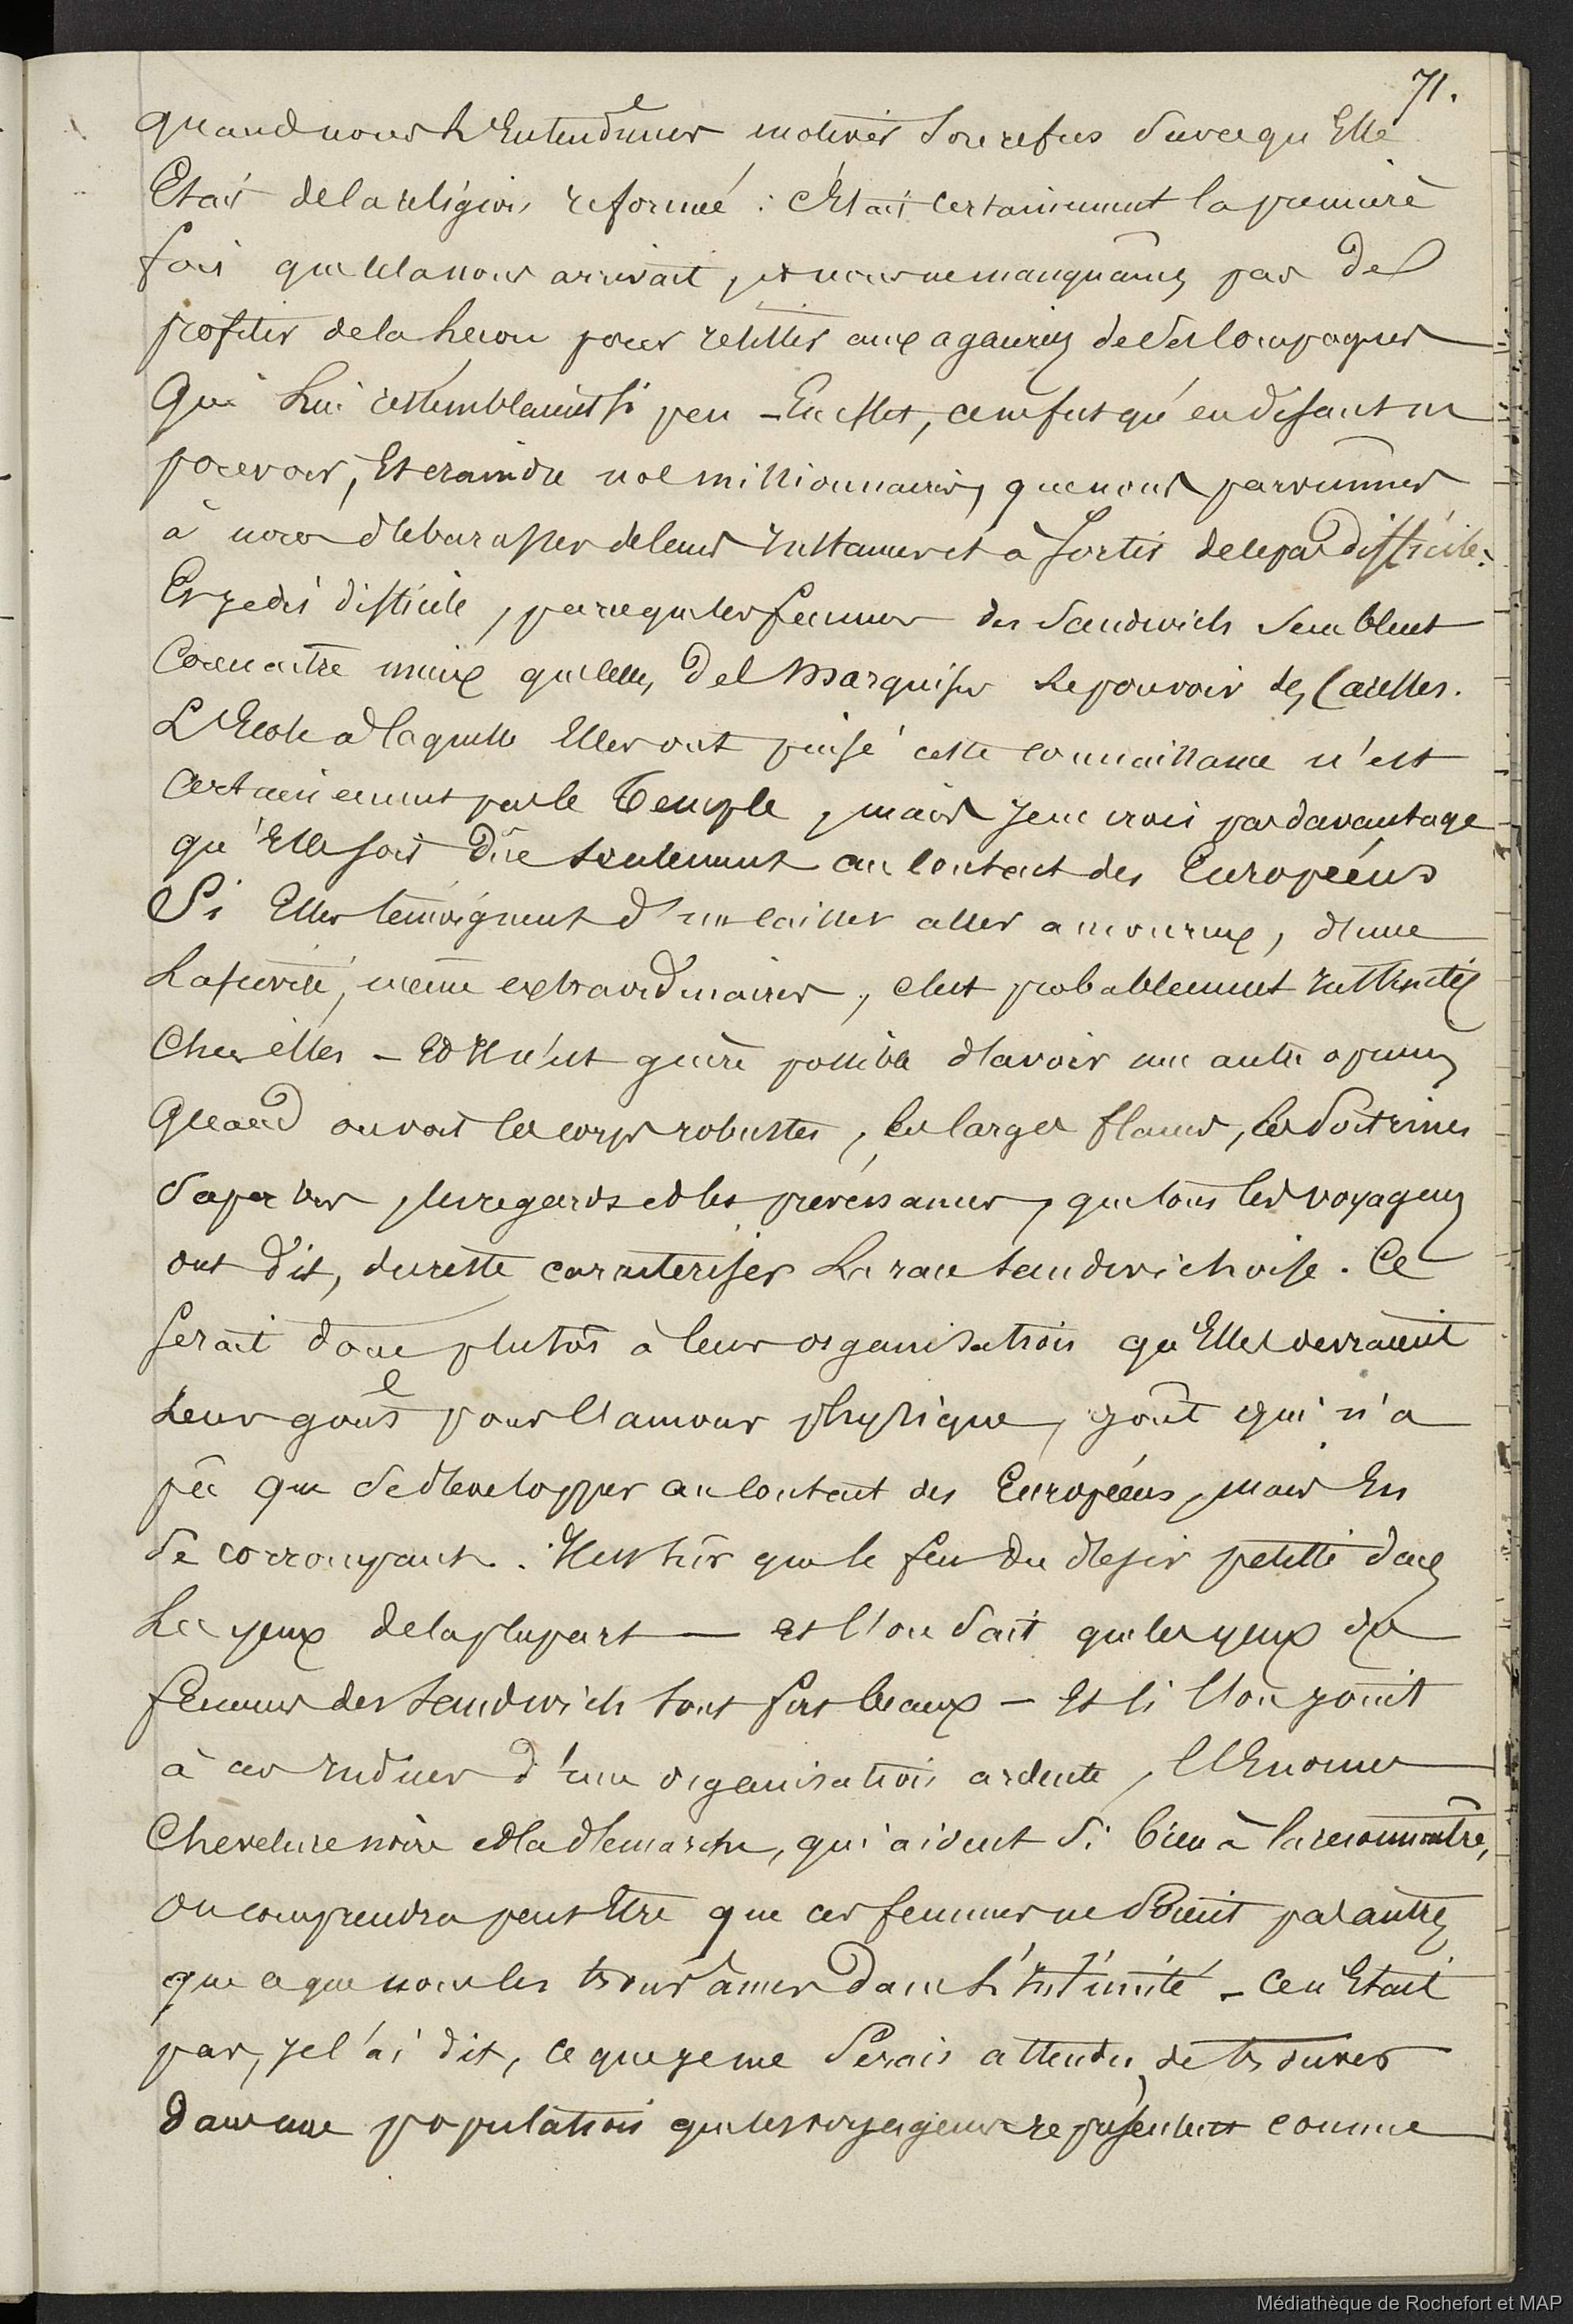 71.
quand nous l'Entendîmes motiver son refus sur ce qu'Elle
Etait de la religion reformée : c'Etait certainement la première
fois que cela nous arrivait, et nous ne manquâmes pas de
profiter de la leçon pour resister aux agaceries de ses compagnes
Qui lui ressemblaient si peu - En effet, ce ne fut qu'en disant ne
pouvoir, Et craindre nos missionnaires, que nous parvînmes
à nous débarasser de leurs Instances et à sortir de ce pas difficile.
Et je dis difficile, parce que les femmes des Sandwich semblent
Connaitre mieux que celles des Marquises le pouvoir des Caresses.
L'Ecole à laquelle Elles ont puisé cette connaissance n'est
Certainement pas le Temple, mais je ne crois pas davantage
qu'Elle soit dûe seulement au contact des Européens
Si Elles témoignent d'un laisser aller amoureux, d'une
Lascivité, même extraordinaires, c'est probablement
Chez elles - Et Il n'est guère possible d'avoir une autre opinion
Quand on voit les corps robustes, les larges flancs, les Poitrines
superbes, les regards et les prévenances, que tous les voyageurs
ont dit, du reste caracteriser la race sandwichoise. Ce
serait donc plutôt à leur organisation qu'Elles devraient
Leur goût pour l'amour physique, goût qui n'a
pû que se développer au contact des Européens, mais En
se corrompant. Il est sûr que le feu du désir petille dans
Les yeux de la plupart — et l'on sait que les yeux des
femmes des Sandwich sont fort beaux - Et si l'on joint
à ces Indices d'une organisation ardente, l'Enorme
Chevelure noire et la démarche, qui aident si bien à la reconnaître,
on comprendra peut Etre que ces femmes ne soient pas autres
que ce que nous les trouvâmes dans l'Intimité - Ce n'Etait
pas, je l'ai dit, ce que je me serais attendu, de trouver
dans une population que les voyageurs représentent comme
Médiathèque de Rochefort et MAP